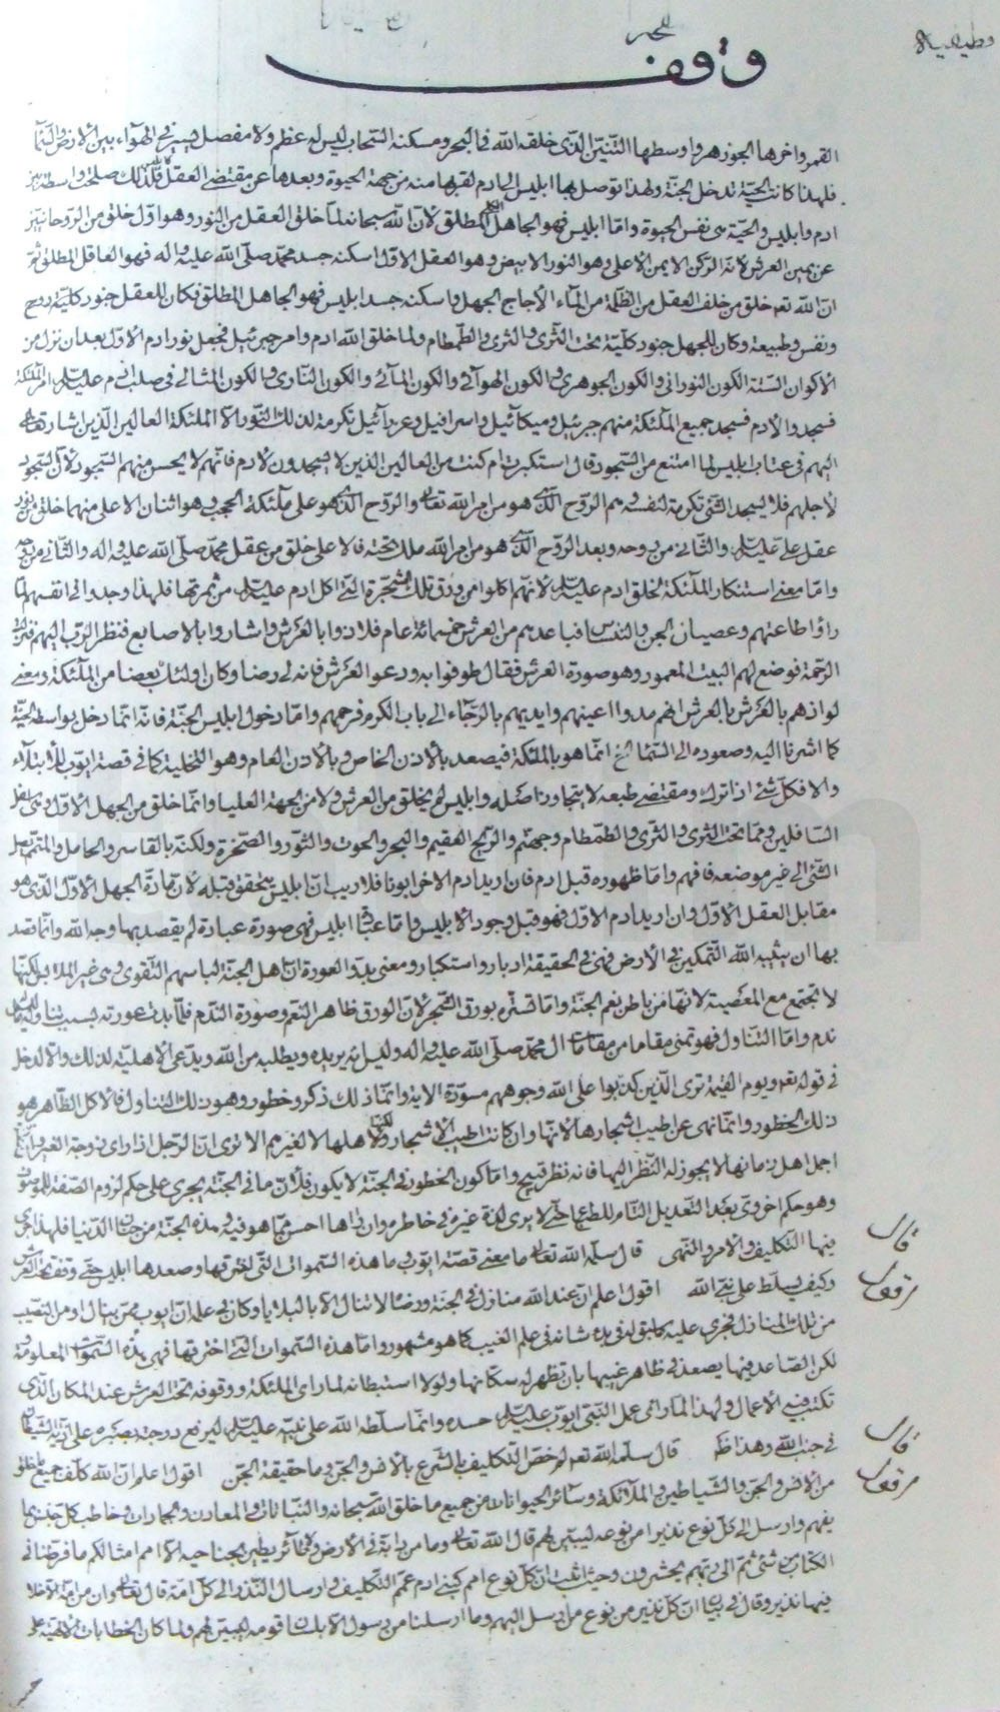 وقف
القمر واخرها الجوزهر واوسطها التنين الذى خلقه الله فى البحر ومسكنه السحاب ليس له عظم ولا مفصل يسير فى الهوآء بين الارض والسمآ
فلهذا كانت الحية تدخل الجنة ولهذا توصل بها ابليس الى ادم لقربها منه من جهة الحيوة وبعدها عن مقتضى العقل فلذلك صلحت واسطة بين
ادم وابليس والحية هى نفس الحيوة واما ابليس فهو الجاهل المطلق لان الله سبحانه لما خلق العقل من النور وهو اول خلق من الروحانيين
عن يمين العرش لانه الركن الايمن الاعلى وهو النور الابيض وهو العقل الاول اسكنه جسد محمد صلى الله عليه واله فهو العاقل المطلق ثم
ان الله تعه خلق من خلف العقل من الظلمة من المآء الاجاج الجهل واسكنه جسد ابليس فهو الجاهل المطلق فكان للعقل جنود كلية روح
ونفس وطبيعة وكان للجهل جنود كلية تحت الثرى والثرى والطمطام ولما خلق الله ادم وامر جبرئيل فجعل نور ادم الاول بعد ان نزل من
الاكوان الستة الكون النورانى والكون الجوهرى والكون الهوآئى والكون المآئى والكون النارى والكون المثالى فى صلب ادم عليه السلم امر الملئكة
فسجدوا لادم فسجد جميع الملئكة منهم جبرئيل وميكآئيل واسرافيل وعزرآئيل تكرمة لذلك النور الا الملئكة العالين الذين اشار تعالى
اليهم فى عتاب ابليس لما امتنع من السجود قال استكبرت ام كنت من العالين الذين لا يسجدون لادم فانهم لا يحسن منهم السجود لان السجود
لاجلهم فلا يسجد الشئ تكرمة لنفسه وهم الروح الذى هو من امر الله تعالى والروح الذى هو على ملئكة الحجب وهو اثنان الاعلى منهما خلق من نور
عقل على عليه السلم والثانى من روحه وبعد الروح الذى هو من امر الله ملك تحته فالاعلى خلق من عقل محمد صلى الله عليه واله والثانى من روحه
واما معنى استنكار الملئكة لخلق ادم عليه السلم لانهم اكلوا من ورق تلك الشجرة التى اكل ادم عليه السلم من ثمرتها فلهذا وجدوا فى انفسهم لما
راوا طاعتهم وعصيان الجن والنسناس فباعدهم من العرش خمسمائة عام فلاذوا بالعرش واشاروا بالاصابع فنظر الرب اليهم فنزلت
الرحمة فوضع لهم البيت المعمور وهو صورة العرش فقال طوفوا به ودعوا العرش فانه لى رضا وكان اولئك بعضا من الملئكة ومعنى
لواذهم بالعرش انهم مدوا اعينهم وايديهم بالرجآء الى باب الكرم فرحمهم واما دخول ابليس الجنة فانه انما دخل بواسطة الحية
كما اشرنا اليه وصعوده الى السمآ انما هو بالملئكة فيصعد بالاذن الخاص وبالاذن العام وهو التخلية كما فى قصة ايوب للابتلآء
والا فكل شئ اذا ترك ومقتضى طبعه لا يتجاوز اصله وابليس لم يخلق من العرش ولا من الجهة العليا وانما خلق من الجهل الاول وهى اسفل
السافلين ومما تحت الثرى والثرى والطمطام وجهنم والريح العقيم والبحر والحوت والثور والصخرة ولكنه بالقاسر والحامل والمتمم يصل
الشئ الى غير موضعه فافهم واما ظهوره قبل ادم فان اريد ادم الاخر ابونا فلا ريب ان ابليس يتحقق قبله لان مادة الجهل الاول الذى هو
مقابل العقل الاول وان اريد ادم الاول فهو قبل وجود الابليس واما عبادة ابليس فهى صورة عبادة لم يقصد بها وجه الله وانما قصد
بها ان يثيبه الله التمكين فى الارض فهى فى الحقيقة ادبار واستكبار ومعنى بدو العورة ان اهل الجنة لباسهم التقوى وهى خير الملابس لكنها
لا تجتمع مع المعصية لانها من باطن نعم الجنة واما تستره بورق الشجر لان الورق ظاهر النعم وصورة الندم فلما بدت عورته بسبب تناوله
ندم واما التناول فهو تمنى مقاما من مقامات ال محمد صلى الله عليه واله وليس انه يريده ويطلبه من الله ويدعى الاهلية لذلك والا لدخل
فى قوله تعه ويوم القيمة ترى الذين كذبوا على الله وجوههم مسودة الاية وانما ذلك ذكر وخطور وهو ذلك التناول فالاكل الظاهر هو
ذلك الخطور وانما نهى عن اطيب اشجارها لانها وان كانت اطيب الاشجار ولكنها لاهلها لا لغيرهم الا ترى ان الرجل اذا راى زوجة الغير
اجمل اهل زمانها لا يجوز له النظر اليها فانه نظر قبيح واما كون الخطور فى الجنة لا يكون فلان ما فى الجنة يجرى على حكم لزوم الصفة للموصوف
وهو حكم اخروى بعد التعديل التام للطبايع حتى لا يرى لذة غيره فى خاطره وان راها احسن مما هو فيه وهذه الجنة من جنان الدنيا فلهذا جرى
فيها التكليف والامر والنهى قال سلمه الله تعالى ما معنى قصة ايوب ما هذه السموات التى اخترقها وصعدها ابليس حتى وقف تحت العرش
وكيف يسلط على نبى الله اقول اعلم ان عند الله منازل فى الجنة ورضا لا تنال الا بالبلايا وكان فى علمه ان ايوب ممن ينال اوفر النصيب
من تلك المنازل
لكن الصاعد فيها يصعد فى ظاهر غيبها بان تظهر له سكانها ولولا استبطانه لما راى الملئكة ووقوفه تحت العرش عند المكان الذى
تكتب فيه الاعمال ولهذا لما راى عمل النبى ايوب عليه السلم حسده وانما سلطه الله على نبيه عليه السلم ليرفع درجته بصبره على اذية الشيطان
فى جنب الله وهذا ظ قال سلمه الله تعه لم خص التكليف بالشرع بالانس والجن وما حقيقة الجن اقول اعلم ان الله كلف جميع ما خلق
من الانس والجن والشياطين والملآئكة وسائر الحيوانات من جميع ما خلق الله سبحانه والنباتات والمعادن والجمادات وخاطب كل جنس بما
يفهم وارسل الى كل نوع نذيرا من نوعه ليبين لهم قال الله تعالى وما من دابة فى الارض ولا طآئر يطير بجناحيه الا امم امثالكم ما فرطنا فى
الكتاب من شئ ثم الى ربهم يحشرون وحيث اثبت ان كل نوع امم كبنى ادم عمم التكليف وارسال النذر الى كل امة قال تعالى وان من امة الا خلا
فيها نذير وقال فى بيان ان كل نذير من نوع من ارسل اليهم وما ارسلنا من رسول الا بلسان قومه ليبين لهم ولما كان الخطابات الالهية على
قال
مرقول
قال
مرقول